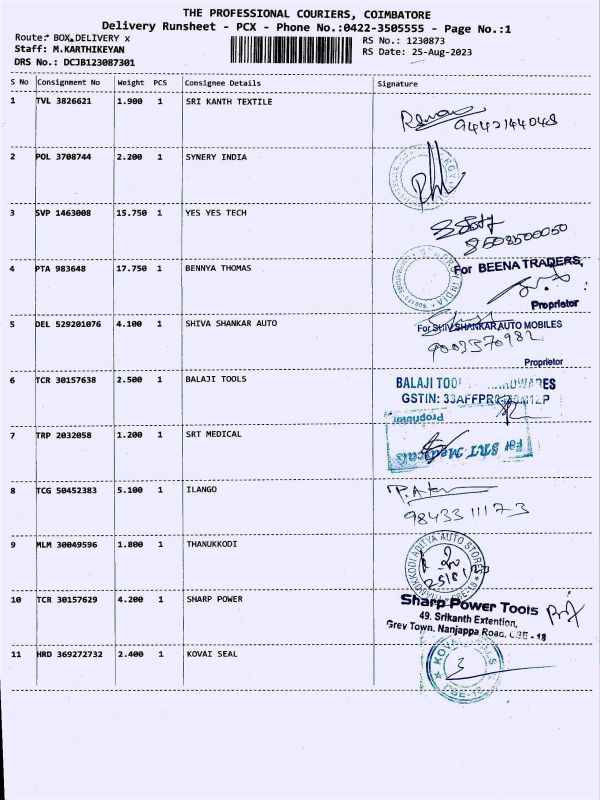 THE PROFESSIONAL COURIERS, COIMBATORE
Delivery Runsheet - PCX - Phone No.:0422-3505555 - Page No.:1
Route: BOX DELIVERY x
RS No.: 1230873
Staff: M.KARTHIKEYAN
RS Date: 25-Aug-2023
DRS No.: DCJB123087301
S No Consignment No Weight PCS Consignee Details Signature
1 TVL 3826621 1.900 1 SRI KANTH TEXTILE
9442144048
2 POL 3708744 2.200 1 SYNERY INDIA
3 SVP 1463008 15.750 1 YES YES TECH
4 PTA 983648 17.750 1 BENNYA THOMAS
For BEENA TRADERS,
Proprietor
5 DEL 529201076 4.100 1 SHIVA SHANKAR AUTO
For SHIV SHANKAR AUTO MOBILES
9003570982
Proprietor
6 TCR 30157638 2.500 1 BALAJI TOOLS
BALAJI
GSTIN:
7 TRP 2032058 1.200 1 SRT MEDICAL
Proprietor
For SRT Medicals
8 TCG 50452383 5.100 1 ILANGO
9843311173
9 MLM 30049596 1.800 1 THANUKKODI
ADITYA AUTO STORES
10 TCR 30157629 4.200 1 SHARP POWER
Sharp Power Tools
49, Srikanth Extention,
Grey Town, Nanjappa Road, CBE - 18
11 HRD 369272732 2.400 1 KOVAI SEAL
CBE-18